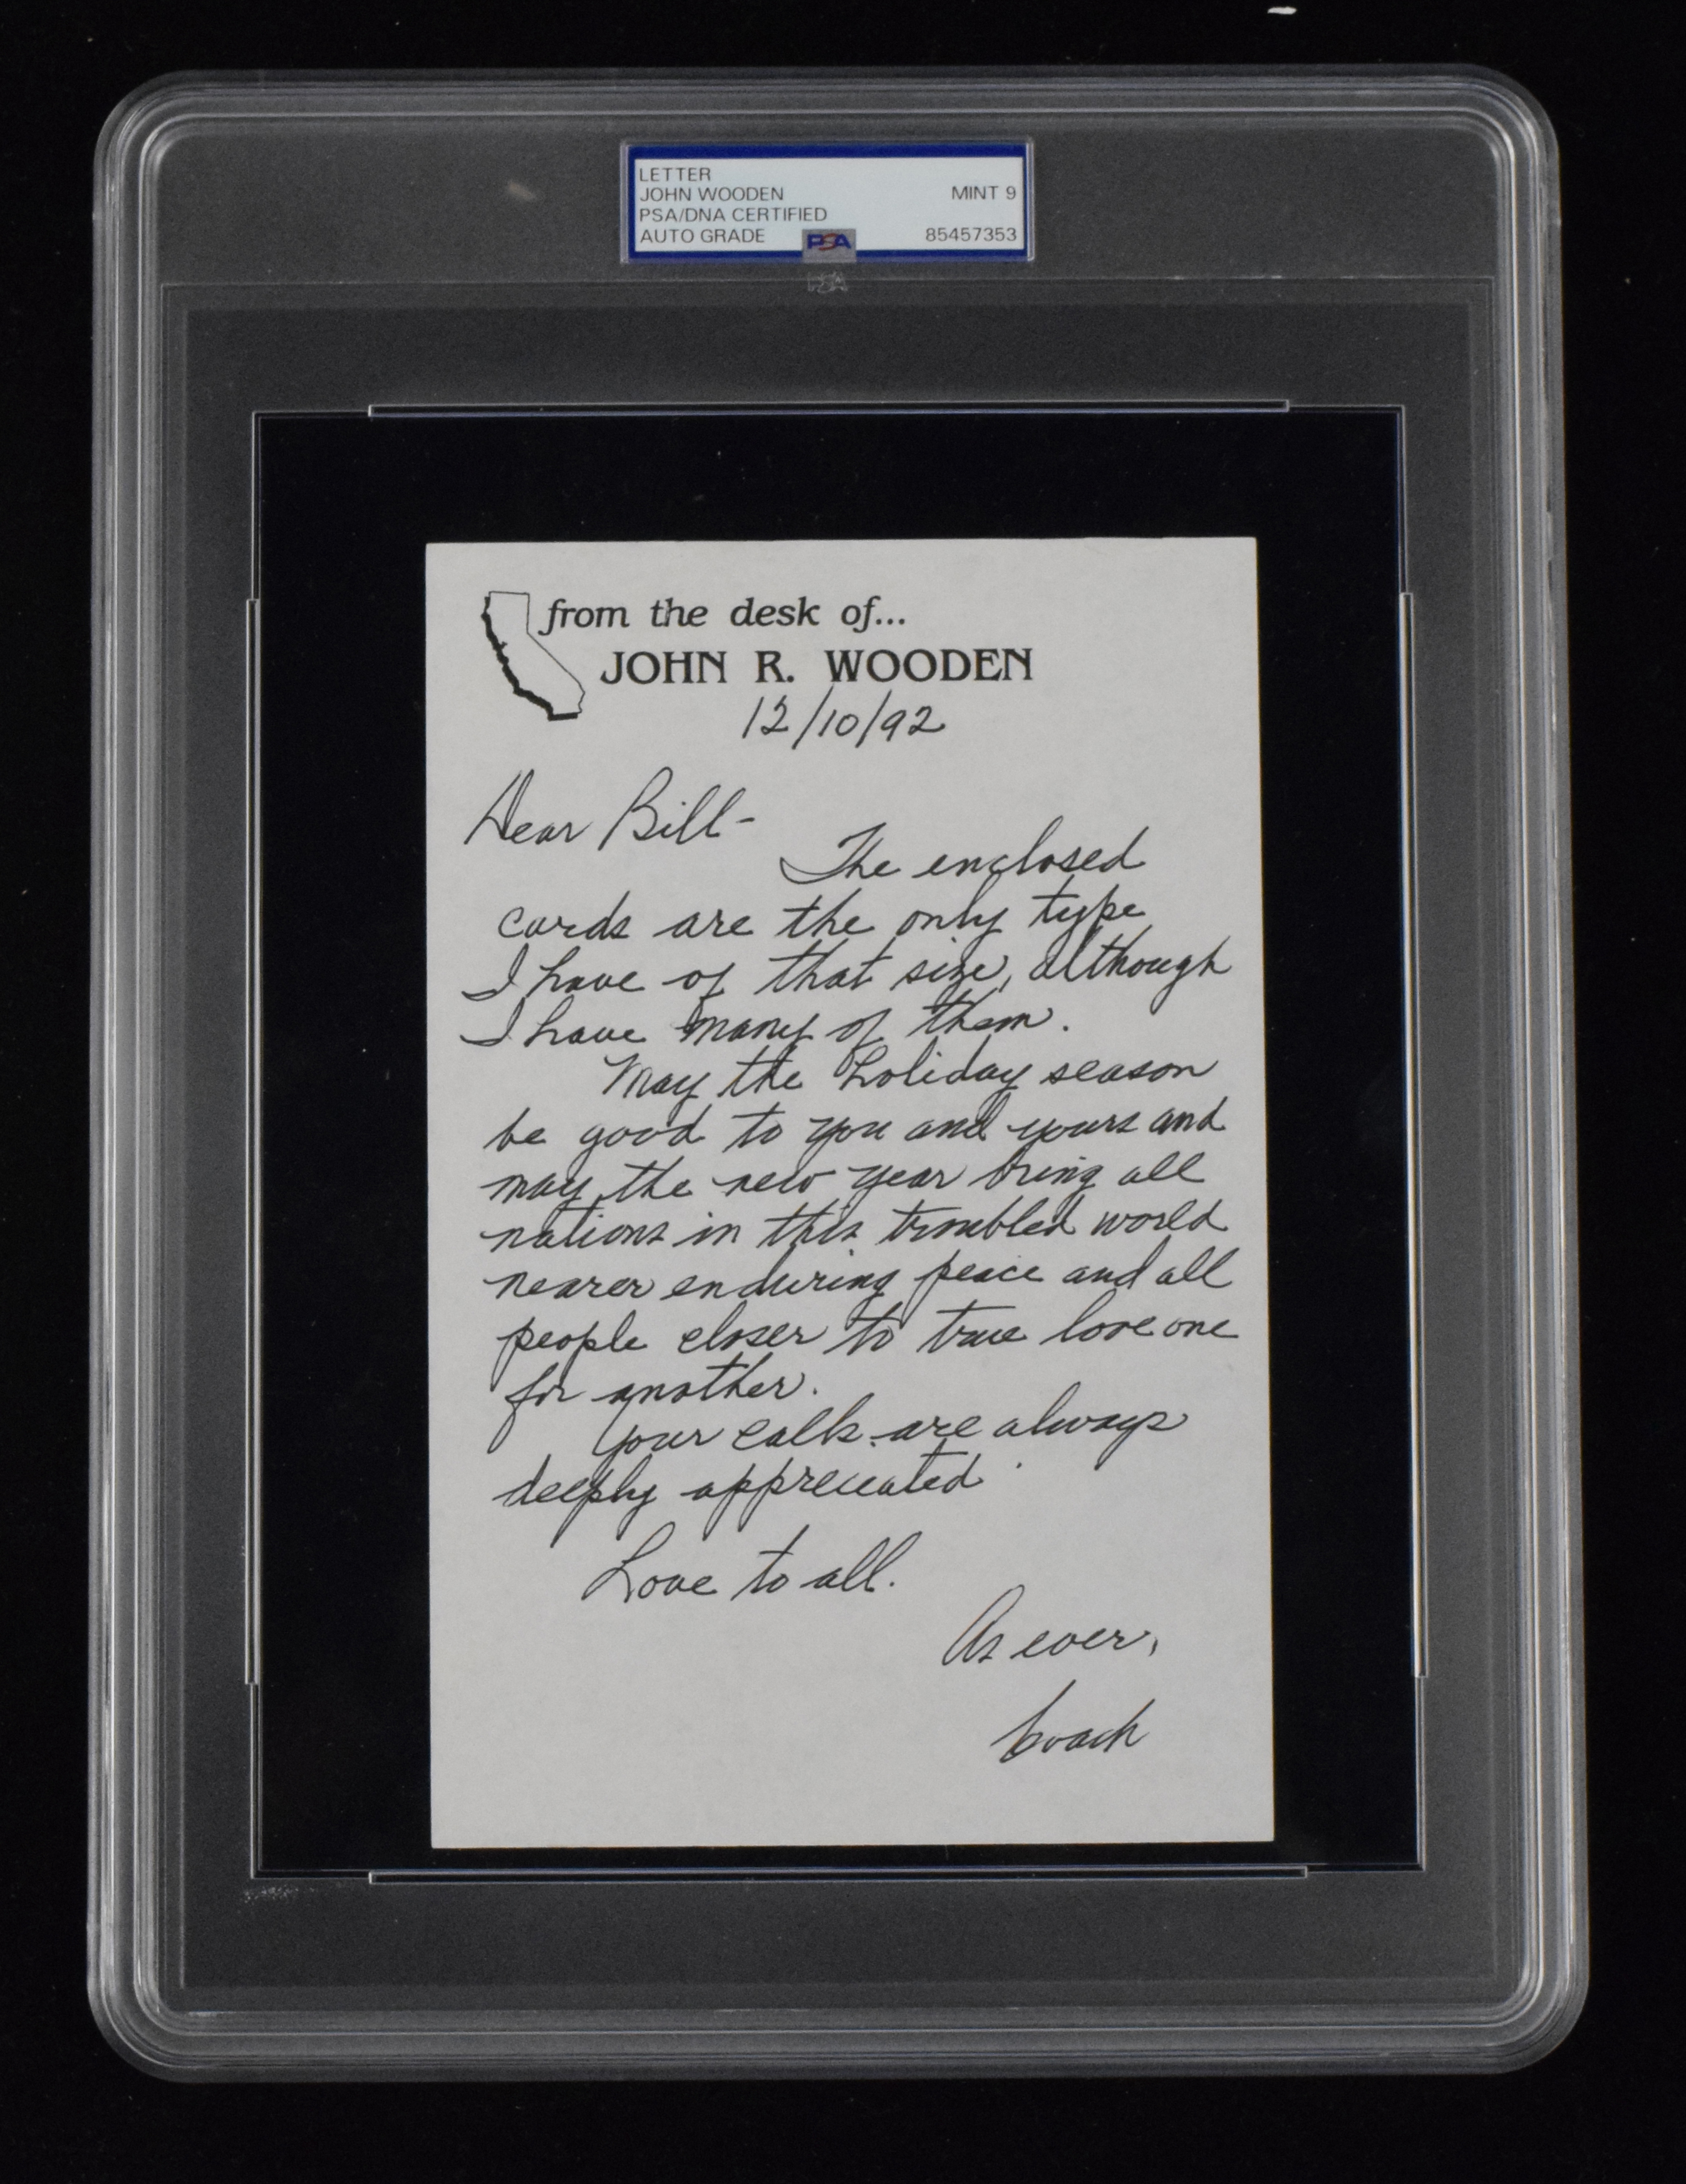 LETTER
JOHN WOODEN MINT 9
PSA/DNA CERTIFIED
AUTO GRADE PSA 85457353
PSA
from the desk of...
JOHN R. WOODEN
12/10/92
Dear Bill-
The enclosed
cards are the only type
I have of that size, although
I have many of them.
May the holiday season
be good to you and yours and
may the new year bring all
nations in this troubled world
nearer enduring peace and all
people closer to true love one
for another.
Your calls are always
deeply appreciated.
Love to all.
As ever,
Coach